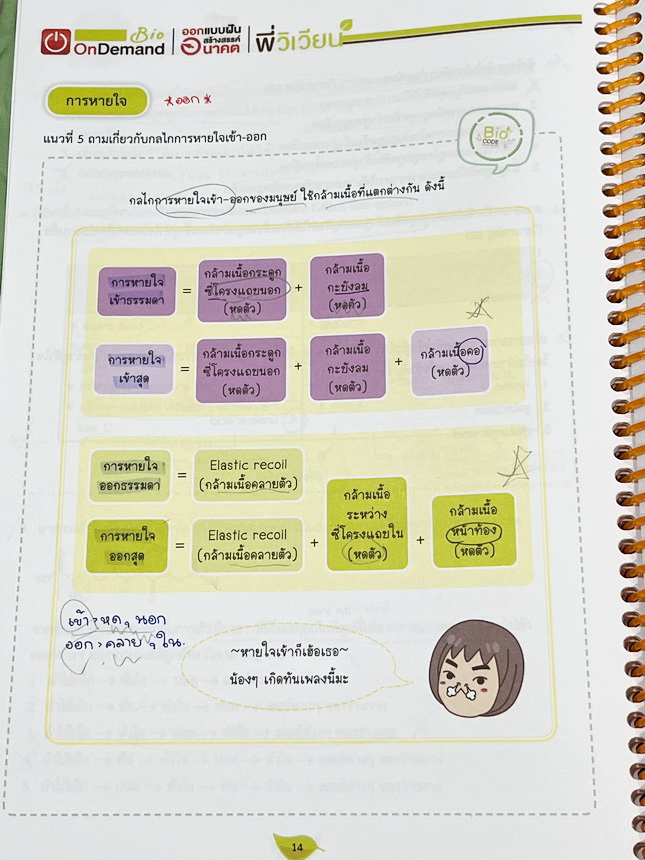 Bio
OnDemand
ออกแบบฝัน
สร้างสรรค์
อนาคต
พี่วิเวียน
การหายใจ
*ออก*
แนวที่ 5 ถามเกี่ยวกับกลไกการหายใจเข้า-ออก
Bio
CODE
กลไกการหายใจเข้า-ออกของมนุษย์ ใช้กล้ามเนื้อที่แตกต่างกัน ดังนี้
การหายใจ
เข้าธรรมดา
=
กล้ามเนื้อกระดูก
ซี่โครงแถบนอก
(หดตัว)
+
กล้ามเนื้อ
กะบังลม
(หดตัว)
การหายใจ
เข้าสุด
=
กล้ามเนื้อกระดูก
ซี่โครงแถบนอก
(หดตัว)
+
กล้ามเนื้อ
กะบังลม
(หดตัว)
+
กล้ามเนื้อคอ
(หดตัว)
การหายใจ
ออกธรรมดา
=
Elastic recoil
(กล้ามเนื้อคลายตัว)
การหายใจ
ออกสุด
=
Elastic recoil
(กล้ามเนื้อคลายตัว)
+
กล้ามเนื้อ
ระหว่าง
ซี่โครงแถบใน
(หดตัว)
+
กล้ามเนื้อ
หน้าท้อง
(หดตัว)
เข้า > หด, นอก
ออก > คลาย, ใน.
~หายใจเข้าก็เฮ้อเธอ~
น้องๆ เกิดทันเพลงนี้มะ
14